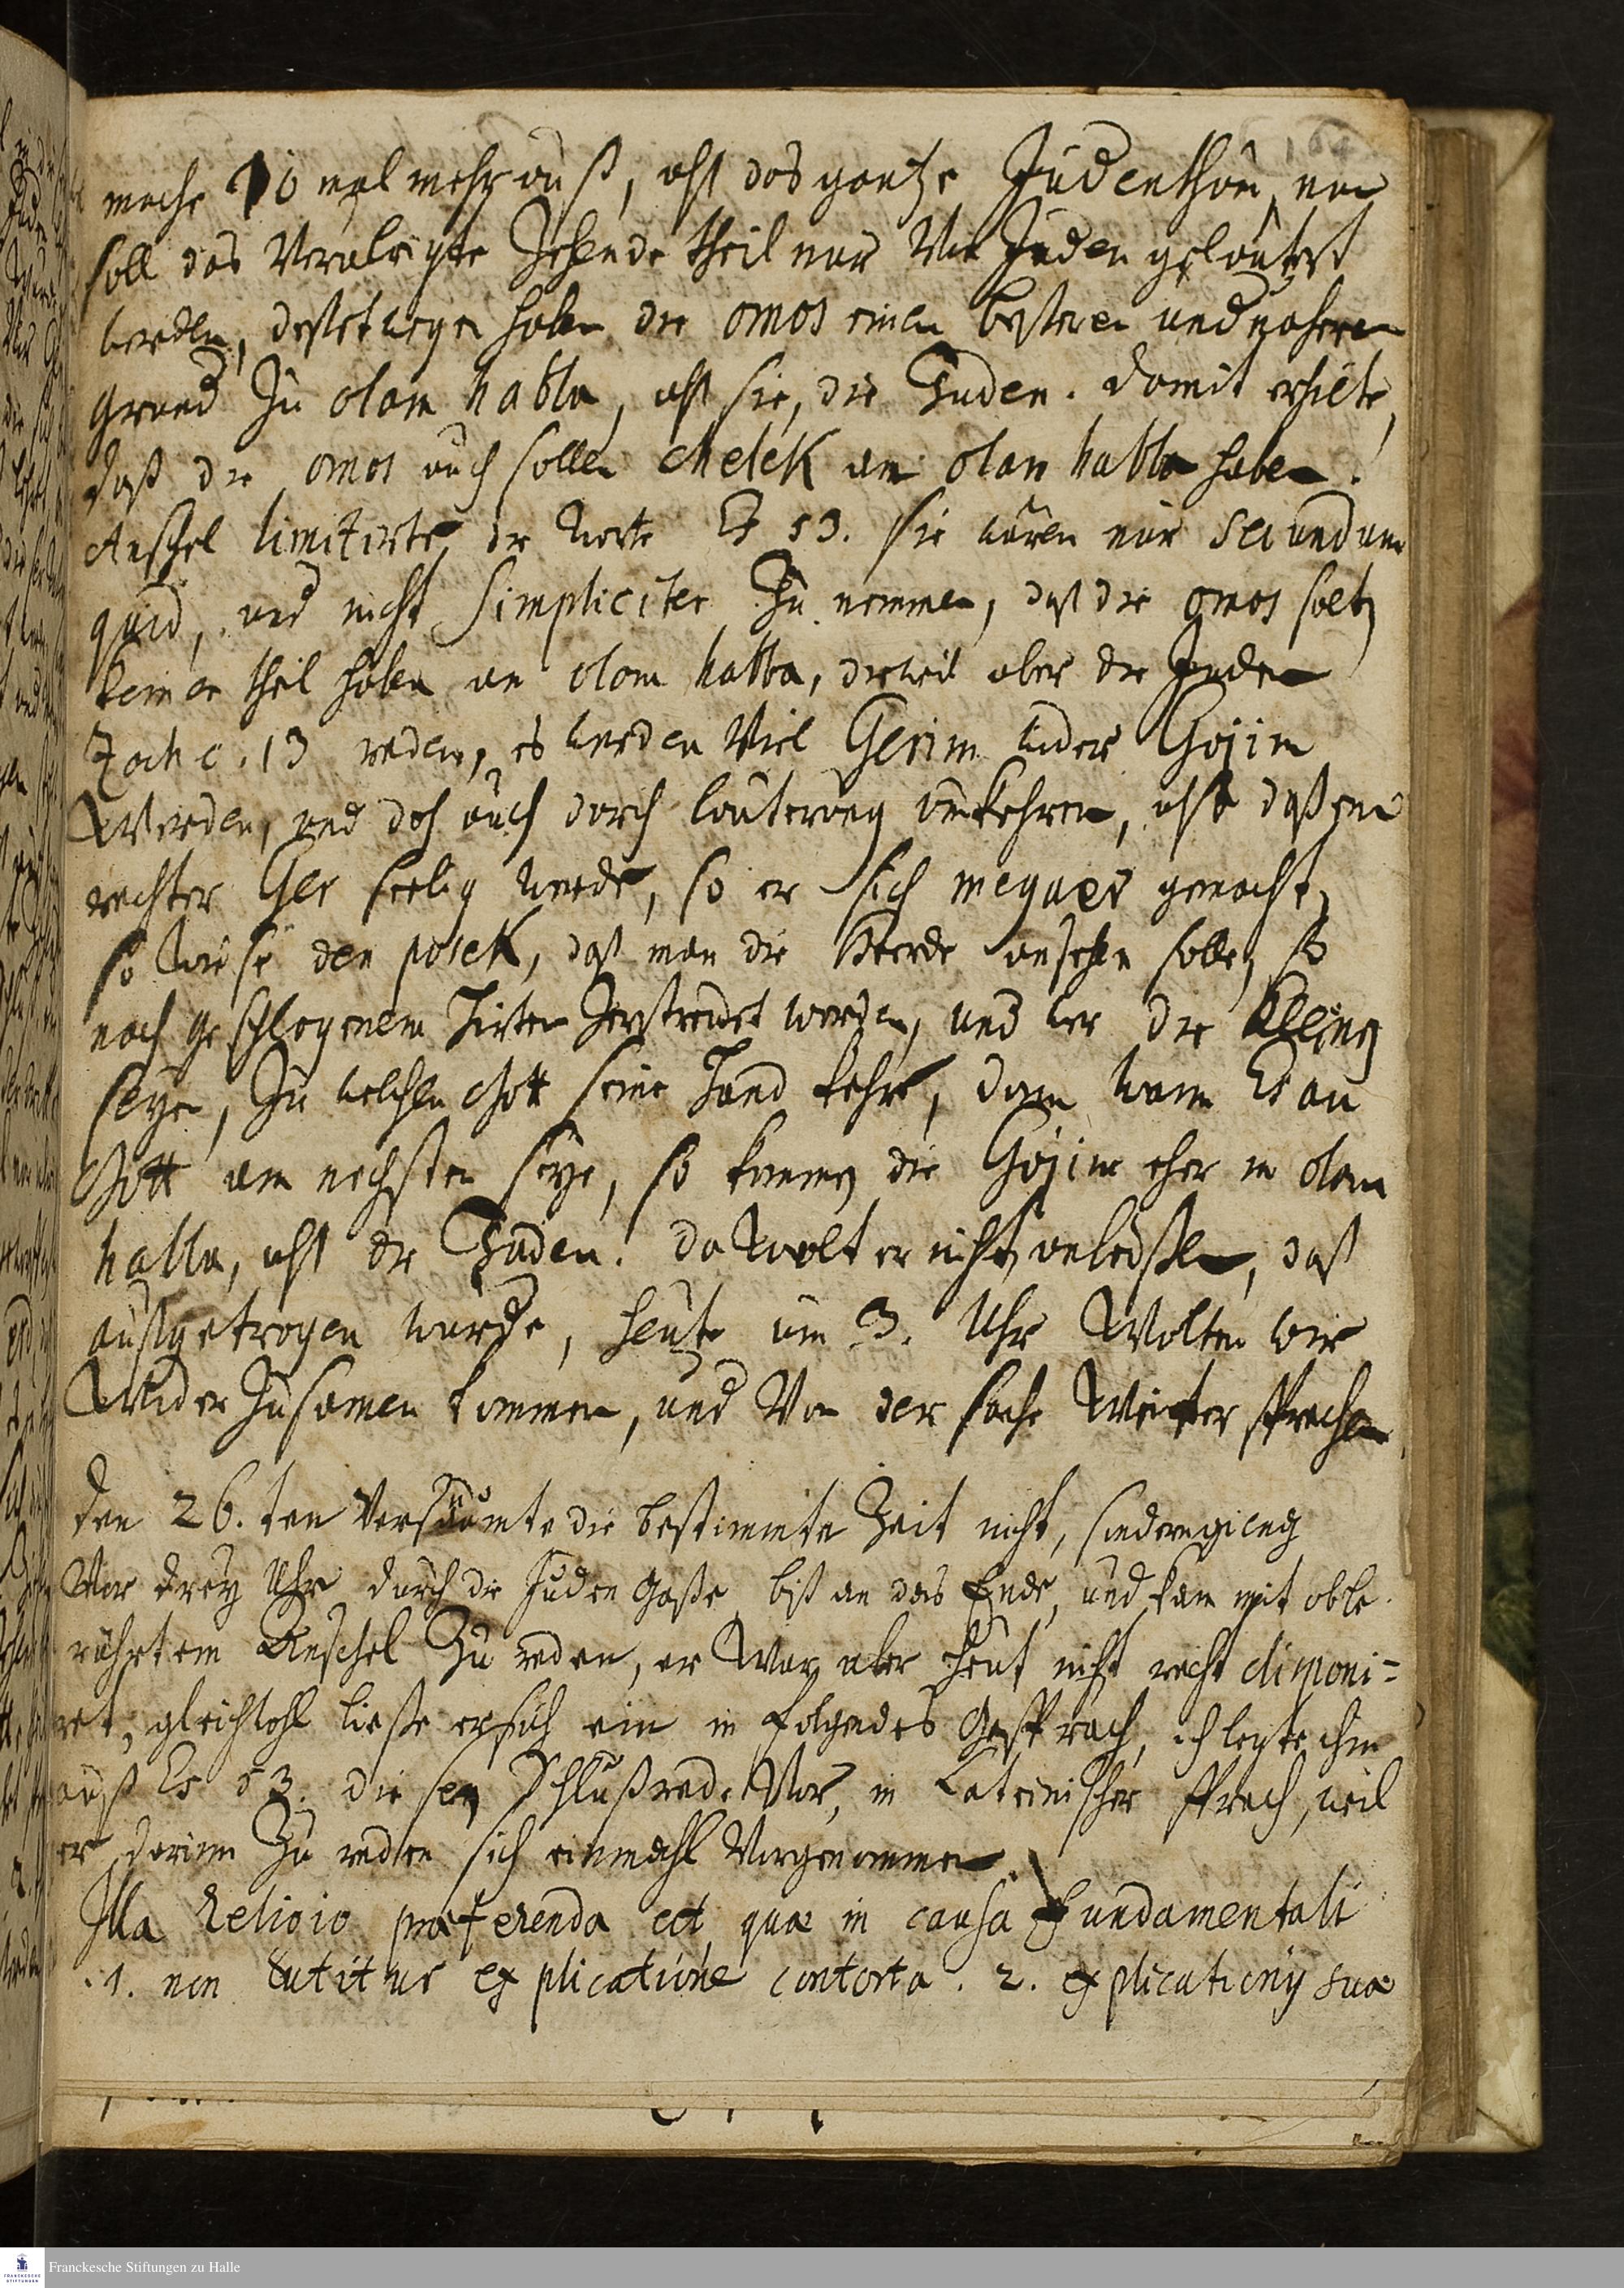 164
mache 10 mal mehr auß, alß das gantze Judenthum, nun
soll das Verwlrigte Zehende theil nur Von Juden geläutert
werden, desßetwegen haben die omos einen besseren und nähern
grund Zu olam habba, alß sie, die Juden. damit erhilte,
daß die omos auch sollen chelek an olam habba haben.
Anschel limitirte, die Worte Es 53. sie wären nur secundum
quid, und nicht simpliciter Zu nemmen, daß die omos solt
keinen theil haben an olam habba, dieweil aber die Juden
Zach c. 13 reden, es werden Viel Gerim wider Gojim
Werden, und doch auch durch läuterung umkehren, also daß ein
rechter Ger seelig werde, so er sich megaer gemacht,
so wise den posek, daß man die Heerde ansehen solle, so
nach geschlagenem Hirten Zerstreuet worden, und wer die Kleine
seyen, Zu welchen Gott seine Hand kehre, dann wann Esau
Gott am nechsten seye, so kommen die Gojim eher in olam
habba, alß die Juden. da Wolt er nicht, daß
außgetragen wurde, heute um 3. Uhr Wolten wir
Wider Zusamen kommen, und Von der sache Weiter sprechen
Den 26.ten Versäumte die bestimmte Zeit nicht, sondern gieng
Vor drey Uhr durch die Juden Gaße, biß an das Ende, und kam mit obbe
rührtem Anschel Zu reden, er War aber heut nicht recht disponi=
ret, gleichwohl ließe er sich ein in folgendes Gespräch, ich legte ihm
auß Es 53. diesen Schlußrede Vor, in Lateinischer sprach, weil
er darinn Zu reden sich einmahl Vorgenommen.
Illa Religio præferenda est, quæ in causa Fundamentali
.1. non Eutitur explicatione contorta. 2. explicationij suæ
Franckesche Stiftungen zu Halle